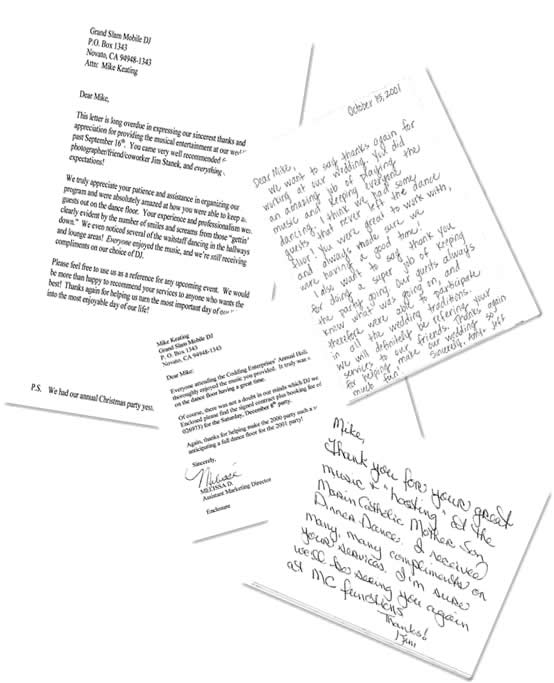 Grand Slam Mobile DJ
P.O. Box 1343
Novato, CA 94948-1343
Attn: Mike Keating
Dear Mike,
This letter is long overdue in expressing our sincerest thanks and
appreciation for providing the musical entertainment at our
past September 16th. You came very well recommended
photographer/friend/coworker Jim Stanek, and everything
expectations!
We truly appreciate your patience and assistance in organizing our
program and were absolutely amazed at how you were able to keep
guests out on the dance floor. Your experience and professionalism
clearly evident by the number of smiles and screams from those "gettin'
down." We even noticed several of the waitstaff dancing in the hallways
and lounge areas! Everyone enjoyed the music, and we're still receiving
compliments on our choice of DJ.
Please feel free to use us as a reference for any upcoming event. We would
be more than happy to recommend your services to anyone who wants the
best! Thanks again for helping us turn the most important day of
into the most enjoyable day of our life!
P.S. We had our annual Christmas party
October 15, 2001
Dear Mike,
We want to say thanks again for
working at our wedding. You did
an amazing job of playing the
music and keeping everyone
dancing. I think we had some
guests that never left the dance
floor! You were great to work with,
and always made sure we
were having a good time!
I also want to say thank you
for doing a super job of keeping
the party going. Our guests always
knew what was going on and
therefore were able to participate
in all the wedding traditions.
We will definitely be refering your
services to our friends. Thanks again
for helping make our wedding so
much fun!
Sincerely,
Mike Keating
Grand Slam Mobile DJ
P. O. Box 1343
Novato, CA 94948-1343
Dear Mike:
Everyone attending the Codding Enterprises' Annual
thoroughly enjoyed the music you provided. It truly was
on the dance floor having a great time.
Of course, there was not a doubt in our minds which DJ
Enclosed please find the signed contract plus booking fee
026973) for the Saturday, December 8th party.
Again, thanks for helping make the 2000 party such a
anticipating a full dance floor for the 2001 party!
Sincerely,
Melissa
MELISSA D.
Assistant Marketing Director
Enclosure
Mike,
Thank you for your great
music & "hosting" at the
Marin Catholic Mother Son
Dinner Dance. I received
many, many compliments on
your services. I'm sure
we'll be seeing you again
at MC functions
Thanks!